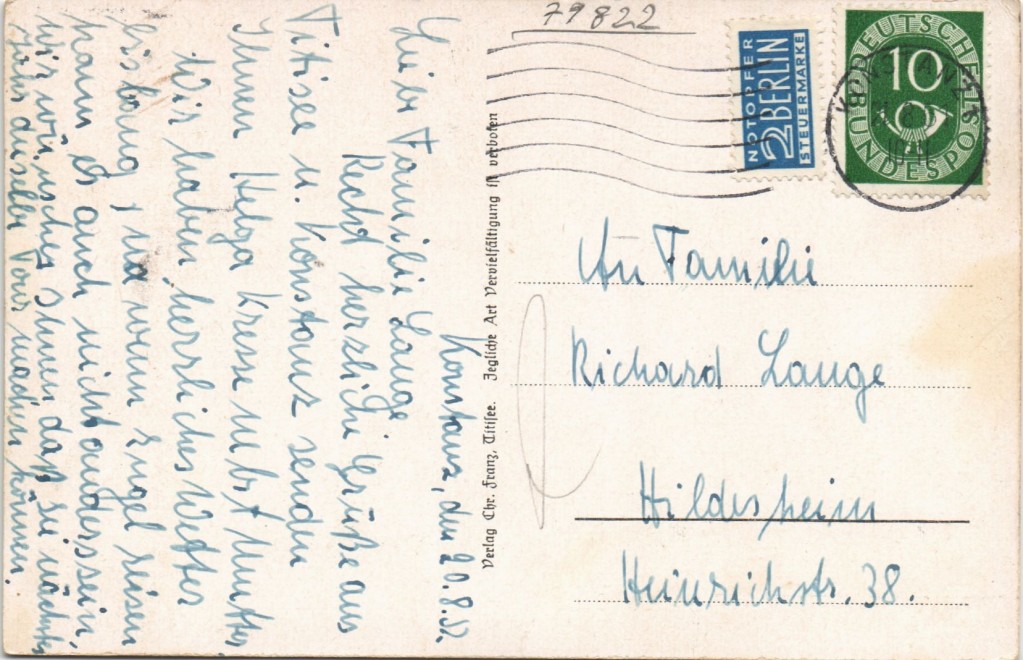 79822
NOTOPFER
2 BERLIN
STEUERMARKE
DEUTSCHE
10
BUNDESPOST
KONSTANZ
Konstanz, den 20.8.52.
Liebe Familie Lange
Recht herzliche Grüße aus
Titisee u. Konstanz senden
Ihnen Helga Kresse nebst Mutter,
Wir haben herrliches Wetter
bislang, na wenn Engel reisen
kann es auch nicht anders sein,
wir wünschen Ihnen daß sie nächstes
Jahr dieselbe Tour machen können.
Verlag Chr. Franz, Titisee. Jegliche Art Vervielfältigung ist verboten
An Familie
Richard Lange
Hildesheim
Heinrichstr. 38.